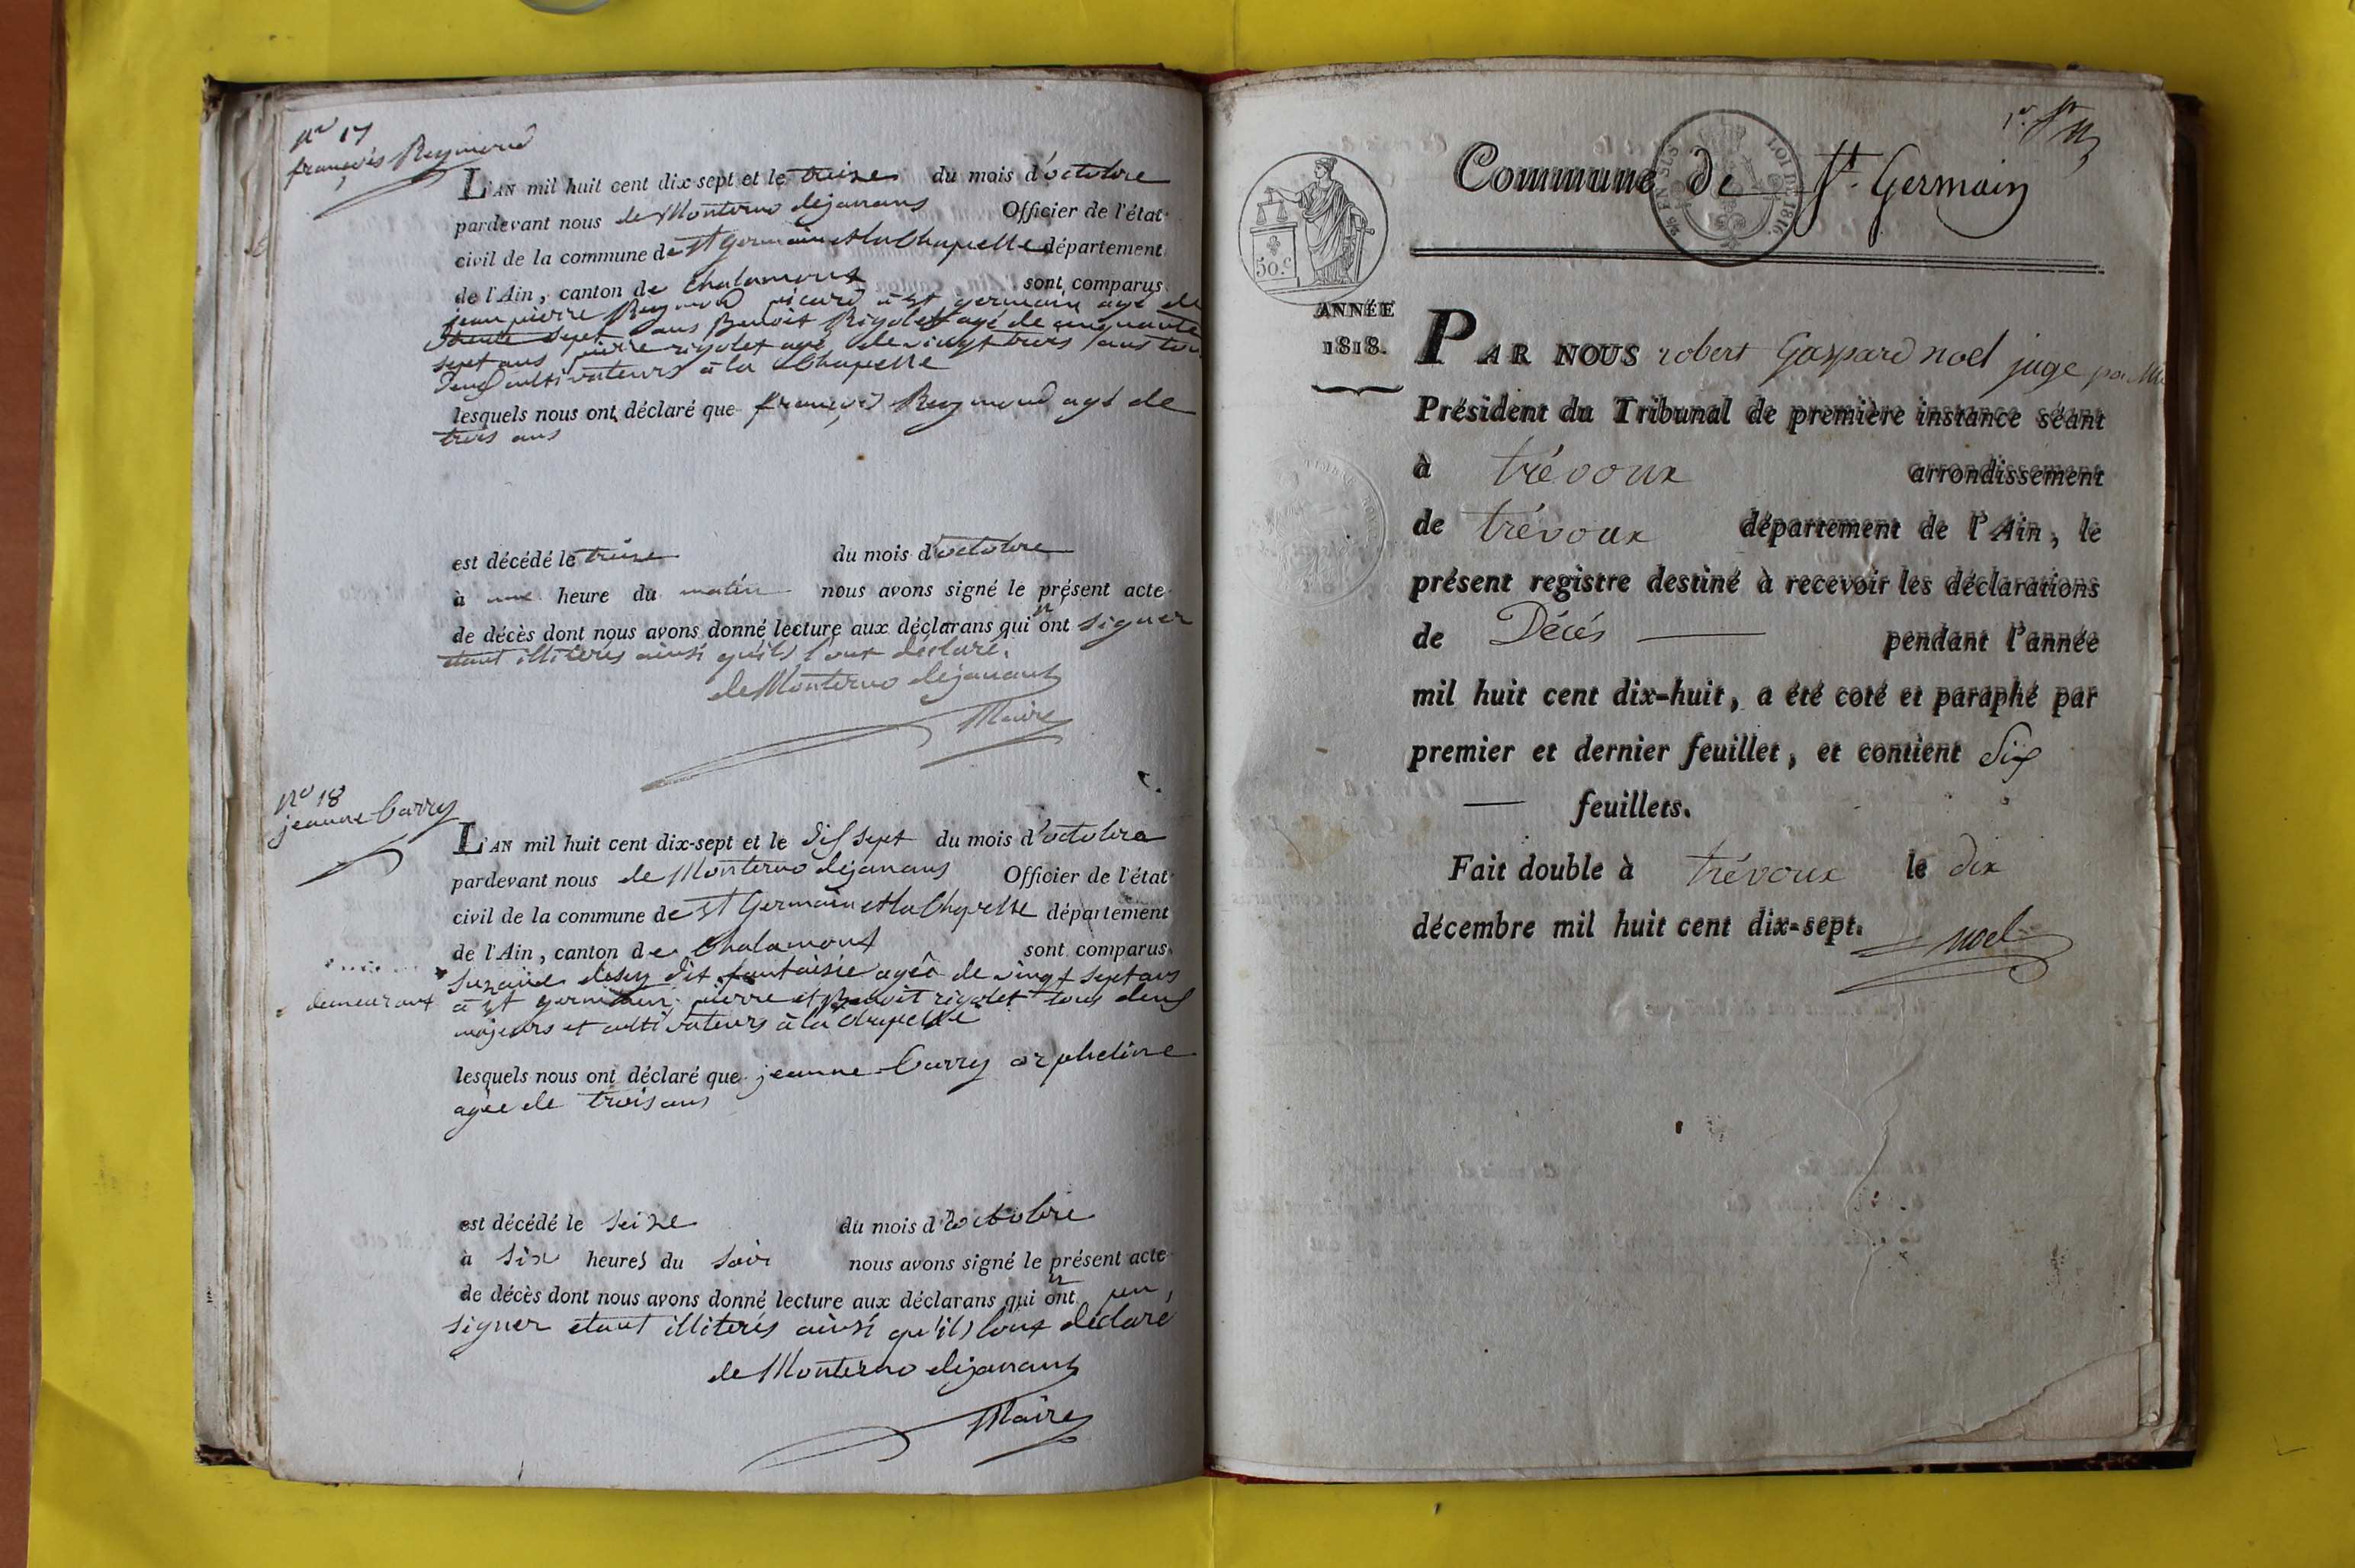 no 17
françois Reymond
L'AN mil huit cent dix-sept et le treize du mois d'octobre
pardevant nous de Monterno déjanans Officier de l'état
civil de la commune de st germain et la Chapelle département
de l'Ain, canton de Chalamont sont comparus
jean pierre Reymond picard à st germain agé de
trente sept ans Benoit Rigolet agé de cinquante
sept ans pierre rigolet agé de vingt trois ans tous
deux cultivateurs à la Chapelle
lesquels nous ont déclaré que françois Reymond agé de
trois ans
est décédé le treize du mois d'octobre
à une heure du matin nous avons signé le présent acte
de décès dont nous avons donné lecture aux déclarans qui n'ont signer
étant illiterés ainsi qu'ils l'ont déclaré.
de Monterno déjanans
Maire
no 18
jeanne Carry
L'AN mil huit cent dix-sept et le dix sept du mois d'octobre
pardevant nous de Monterno déjanans Officier de l'état
civil de la commune de st Germain et la Chapelle département
de l'Ain, canton de Chalamont sont comparus
Suzanne dit fantaisie agée de vingt sept ans
demeurant à st germain pierre et Benoit rigolet tous deux
majeurs et cultivateurs à la Chapelle
lesquels nous ont déclaré que jeanne Carry orpheline
agée de trois ans
est décédé le seize du mois d'octobre
à six heures du soir nous avons signé le présent acte
de décès dont nous avons donné lecture aux déclarans qui n'ont pu
signer étant illiterés ainsi qu'ils l'ont déclaré
de Monterno déjanans
Maire
Commune de St. Germain
50.c
ANNÉE
1818.
PAR NOUS robert Gaspard noel juge
Président du Tribunal de première instance séant
à trévoux arrondissement
de trévoux département de l'Ain, le
présent registre destiné à recevoir les déclarations
de Décés pendant l'année
mil huit cent dix-huit, a été coté et paraphé par
premier et dernier feuillet, et contient Six
feuillets.
Fait double à trévoux le dix
décembre mil huit cent dix-sept.
noel